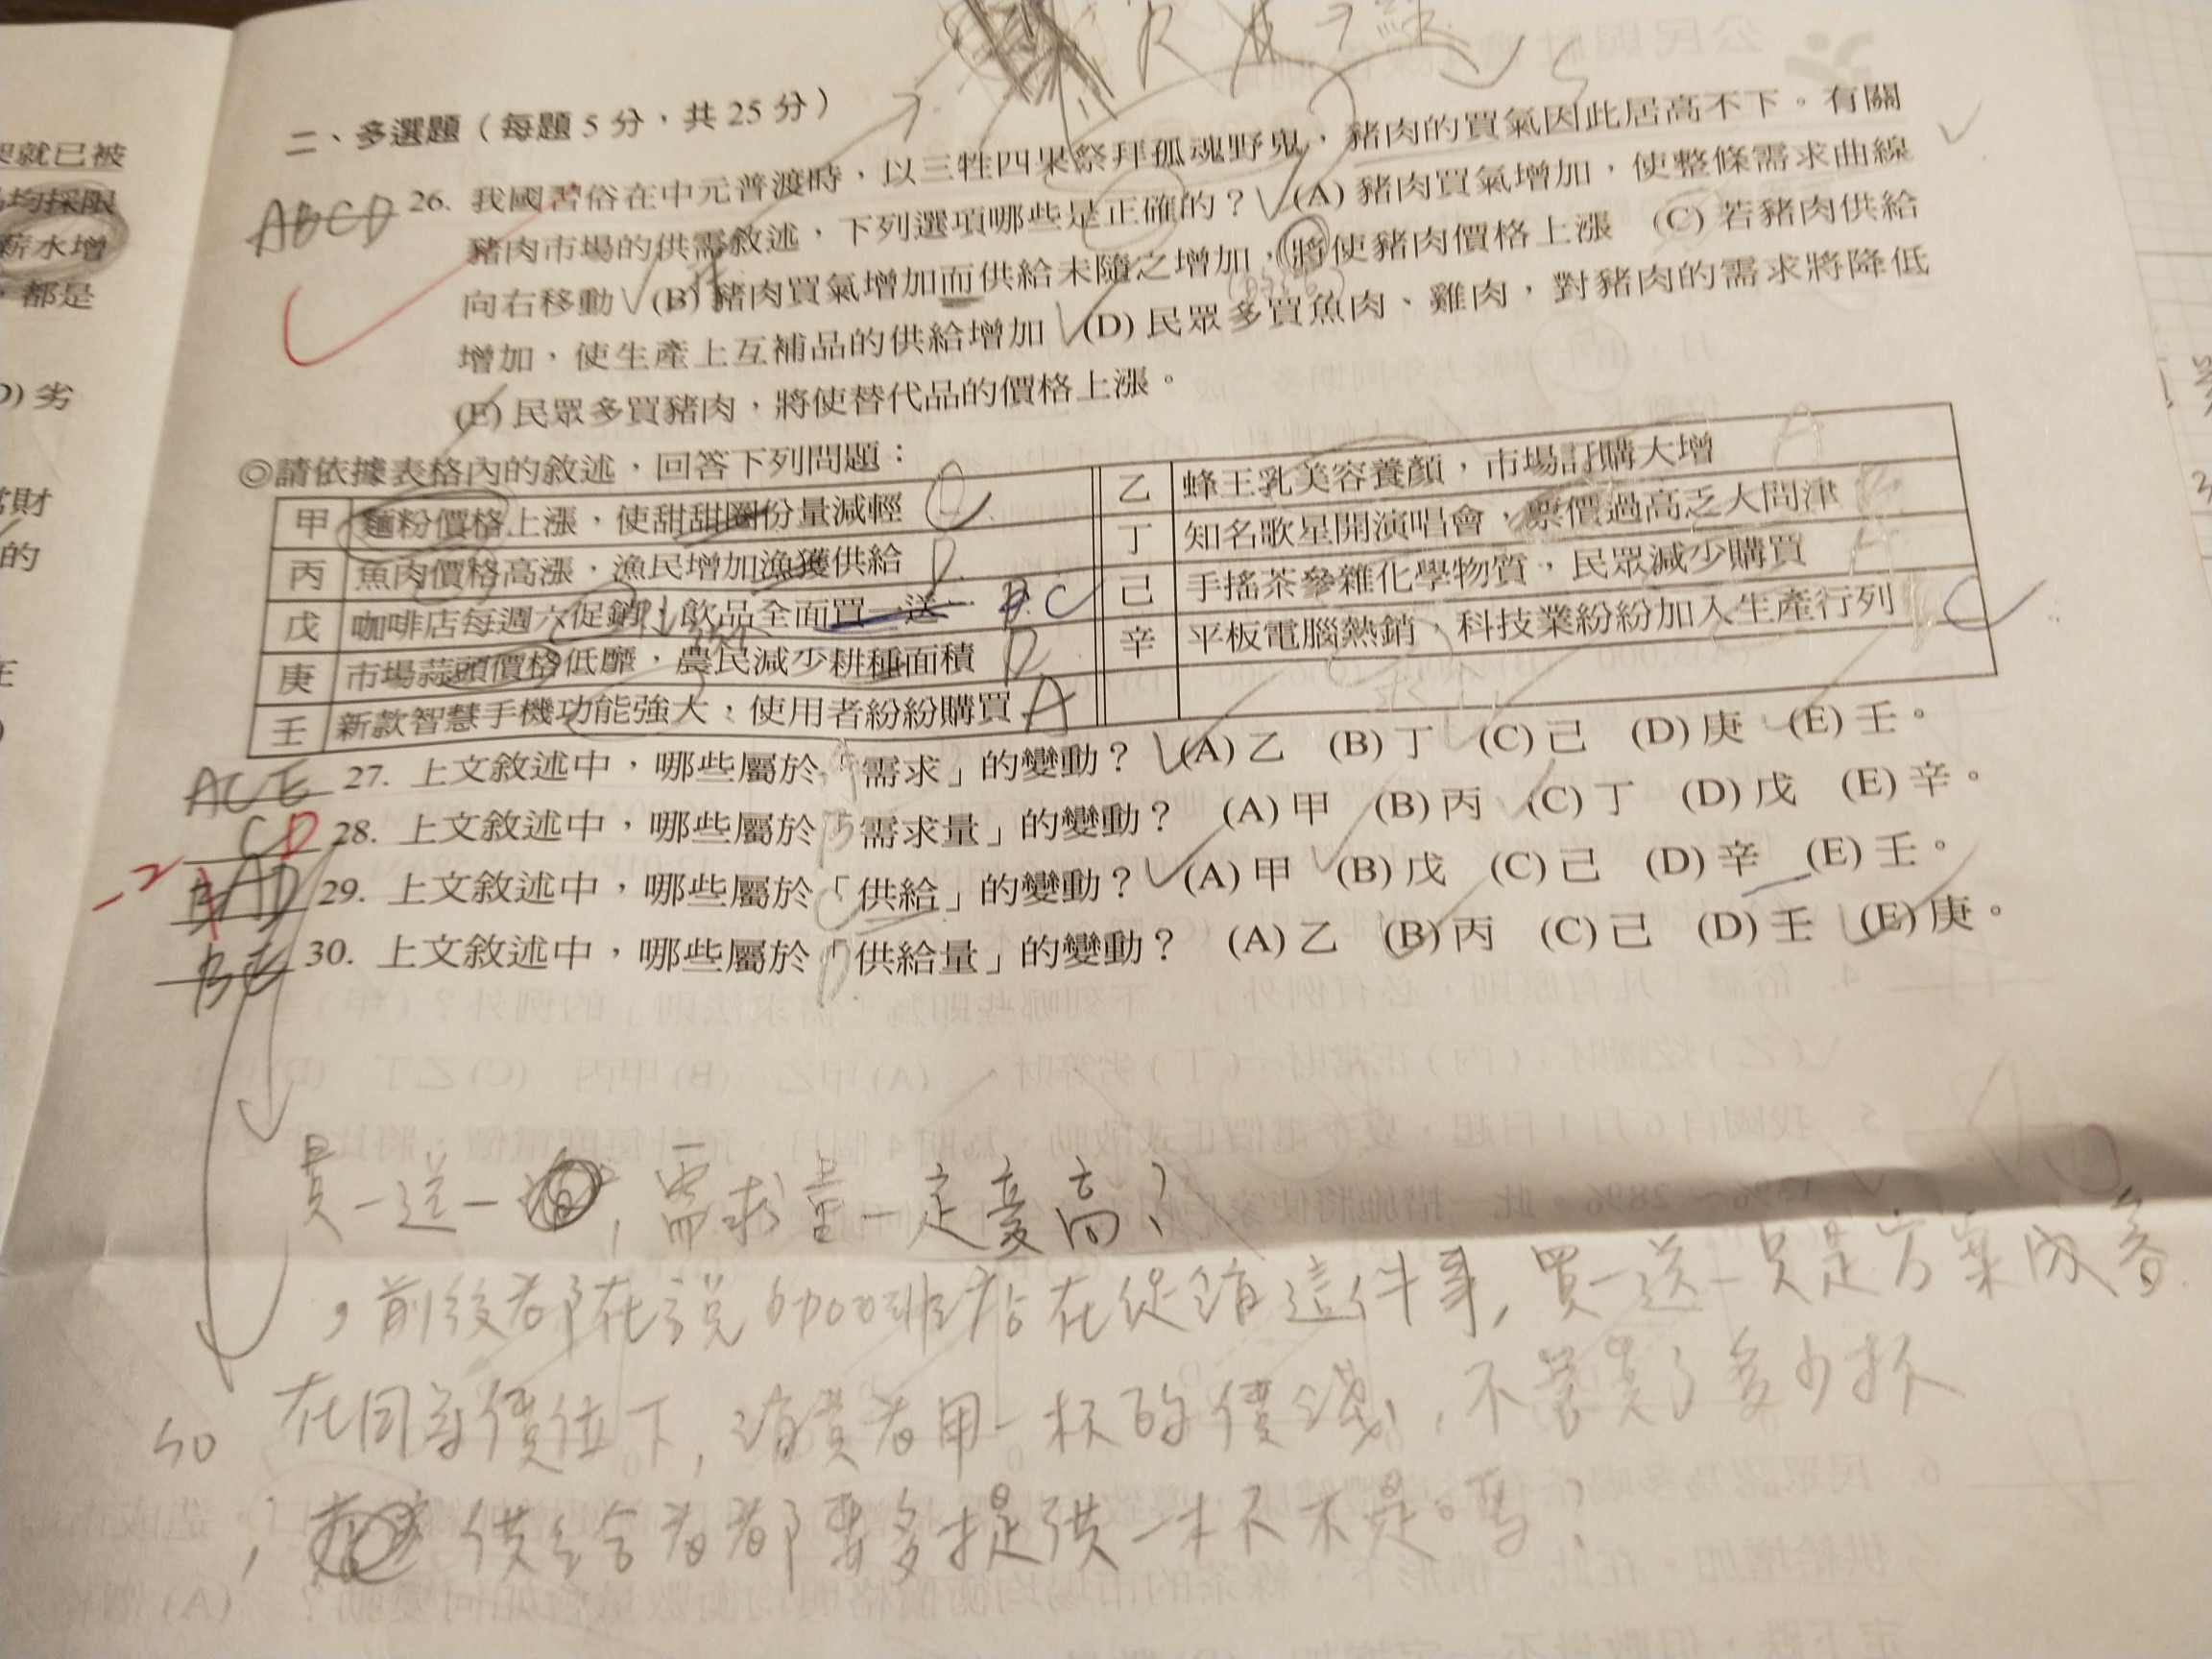 二、多選題（每題 5 分，共 25 分）
ABCD 26. 我國習俗在中元普渡時，以三牲四果祭拜孤魂野鬼，豬肉的買氣因此居高不下。有關
豬肉市場的供需敘述，下列選項哪些是正確的？ (A) 豬肉買氣增加，使整條需求曲線
向右移動 (B) 豬肉買氣增加而供給未隨之增加，將使豬肉價格上漲 (C) 若豬肉供給
增加，使生產上互補品的供給增加 (D) 民眾多買魚肉、雞肉，對豬肉的需求將降低
(E) 民眾多買豬肉，將使替代品的價格上漲。
◎請依據表格內的敘述，回答下列問題：
甲 麵粉價格上漲，使甜甜圈份量減輕 C
乙 蜂王乳美容養顏，市場訂購大增 A
丙 魚肉價格高漲，漁民增加漁獲供給 D
丁 知名歌星開演唱會，票價過高乏人問津
戊 咖啡店每週六促銷，飲品全面買一送一 C
己 手搖茶參雜化學物質，民眾減少購買
庚 市場蒜頭價格低靡，農民減少耕種面積 D
辛 平板電腦熱銷，科技業紛紛加入生產行列 C
壬 新款智慧手機功能強大，使用者紛紛購買 A
ACE 27. 上文敘述中，哪些屬於「需求」的變動？ (A) 乙 (B) 丁 (C) 己 (D) 庚 (E) 壬。
CD 28. 上文敘述中，哪些屬於「需求量」的變動？ (A) 甲 (B) 丙 (C) 丁 (D) 戊 (E) 辛。
-2 AD 29. 上文敘述中，哪些屬於「供給」的變動？ (A) 甲 (B) 戊 (C) 己 (D) 辛 (E) 壬。
BE 30. 上文敘述中，哪些屬於「供給量」的變動？ (A) 乙 (B) 丙 (C) 己 (D) 壬 (E) 庚。
買一送一，需求量一定變高？
，前後都在說咖啡店在促銷這件事，買一送一只是方案內容
so 在同等價位下，消費者用一杯的價錢，不管賣了多少杯
，供給者都要多提供一杯不是嗎？
說就已被
均採限
薪水增
，都是
D) 劣
當財
的